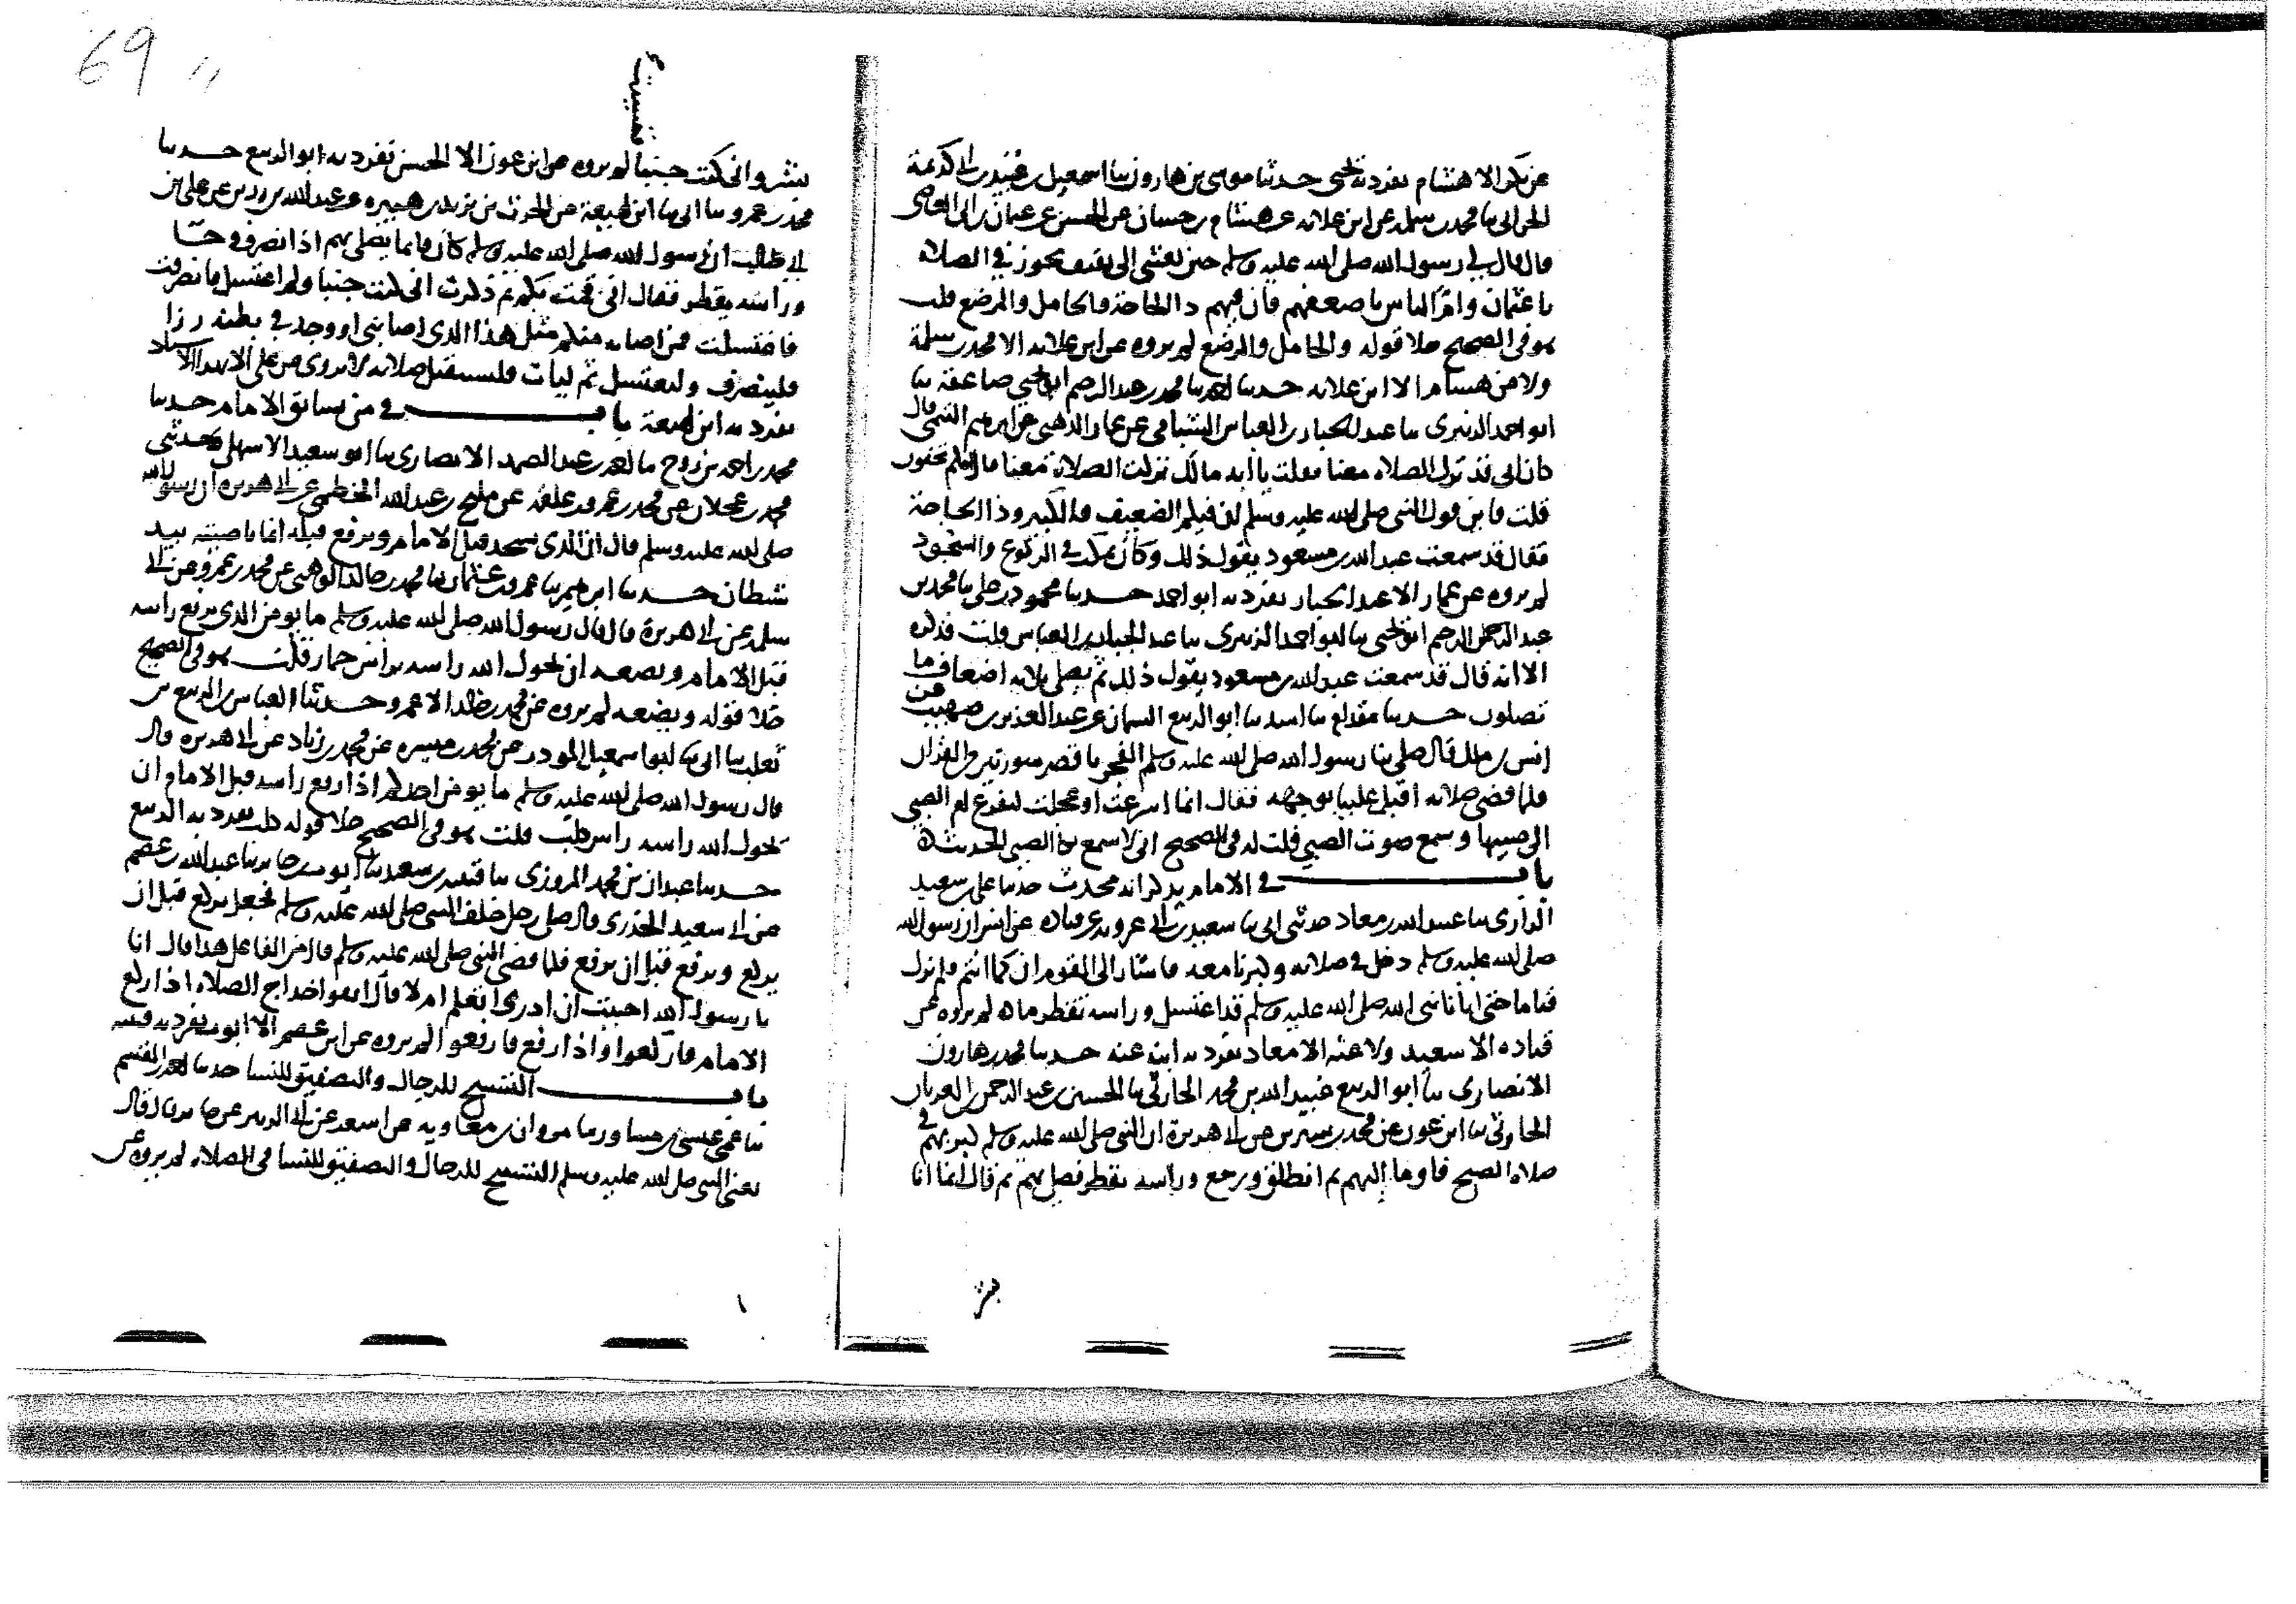 عن بكر الا هشام تفرد به يحيى حدثنا موسى بن هارون نا اسمعيل بن عبيد بن ابي كريمة
الحراني نا محمد بن سلمة عن ابن علاثة عن هشام بن حسان عن الحسن عن عثمان بن ابي العاصي
قال قال لي رسول الله صلى الله عليه وسلم حين بعثني الى ثقيف تجوز في الصلاة
يا عثمان واقرا الناس باضعفهم فان فيهم ذا الحاجة والحامل والمرضع قلت
هو في الصحيح خلا قوله والحامل والمرضع لم يروه عن ابن علاثة الا محمد بن سلمة
ولا عن هشام الا ابن علاثة حدثنا احمد نا محمد بن عبد الرحيم ابو يحيى صاعقة نا
ابو احمد الزبيري نا عبد الجبار بن العباس الشبامي عن عمار الدهني عن ابرهيم التيمي قال
كان ابي قد ترك الصلاة معنا فقلت يا ابه مالك تركت الصلاة معنا قال انكم تخفون
قلت فاين قول النبي صلى الله عليه وسلم ان فيكم الضعيف والكبير وذا الحاجة
فقال قد سمعت عبد الله بن مسعود يقول ذلك وكان يمكث في الركوع والسجود
لم يروه عن عمار الا عبد الجبار تفرد به ابو احمد حدثنا محمود بن علي نا محمد بن
عبد الرحيم ابو يحيى نا ابو احمد الزبيري نا عبد الجبار بن العباس قلت فذكره
الا انه قال قد سمعت عبد الله بن مسعود يقول ذلك ثم يصلي ثلاثة اضعاف ما
تصلون حدثنا مقدام نا اسد نا ابو الربيع السمان عن عبد العزيز بن صهيب عن
انس بن ملك قال صلى بنا رسول الله صلى الله عليه وسلم الفجر باقصر سورتين من القران
فلما قضى صلاته اقبل علينا بوجهه فقال انما اسرعت او عجلت لتفرغ ام الصبي
الى صبيها وسمع صوت الصبي قلت له في الصحيح اني لاسمع بكا الصبي الحديث
باب في الامام يذكر انه محدث حدثنا علي بن سعيد
الرازي نا عبيد الله بن معاذ حدثني ابي نا سعيد بن ابي عروبة عن قتادة عن انس ان رسول الله
صلى الله عليه وسلم دخل في صلاته وكبرنا معه فاشار الى القوم ان كما انتم فلم نزل
قياما حتى اتانا نبي الله صلى الله عليه وسلم قد اغتسل وراسه تقطر ما لم يروه عن
قتادة الا سعيد ولا عنه الا معاذ تفرد به ابنه عنه حدثنا محمد بن هارون
الانصاري نا ابو الربيع عبيد الله بن محمد الحارثي نا الحسن بن عبد الرحمن بن العريان
الحارثي نا ابن عون عن محمد بن سيرين عن ابي هريرة ان النبي صلى الله عليه وسلم كبر بهم في
صلاة الصبح فاوما اليهم ثم انطلق ورجع وراسه تقطر فصلى بهم ثم قال انما انا
بشر
بشر واني كنت جنبا لم يروه عن ابن عون الا الحسن تفرد به ابو الربيع حدثنا
محمد بن عمرو نا ابي نا ابن لهيعة عن الحرث بن يزيد بن هبيرة عن عبد الله بن زرير عن علي بن
ابي طالب ان رسول الله صلى الله عليه وسلم كان قايما يصلي بهم اذ انصرف وجا
وراسه يقطر فقال اني قمت بكم ثم ذكرت اني كنت جنبا ولم اغتسل فانصرفت
فاغتسلت فمن اصابه منكم مثل هذا الذي اصابني او وجد في بطنه رزا
فلينصرف وليغتسل ثم ليات فليستقبل صلاته لا يروى عن علي الا بهذا الاسناد
تفرد به ابن لهيعة باب في من سابق الامام حدثنا
محمد بن احمد بن روح نا احمد بن عبد الصمد الانصاري نا ابو سعيد الاشهلي حدثني
محمد بن عجلان عن محمد بن عمرو بن علقمة عن مليح بن عبد الله الخطمي عن ابي هريرة ان رسول الله
صلى الله عليه وسلم قال ان الذي يسجد قبل الامام ويرفع قبله انما ناصيته بيد
شيطان حدثنا ابرهيم نا عمرو بن عثمان نا محمد بن خالد الوهبي عن محمد بن عمرو عن ابي
سلمة عن ابي هريرة قال قال رسول الله صلى الله عليه وسلم ما يومن الذي يرفع راسه
قبل الامام ويضعه ان يحول الله راسه براس حمار قلت هو في الصحيح
خلا قوله ويضعه لم يروه عن محمد بن خالد الا عمرو حدثنا العباس بن الربيع بن
ثعلب نا ابي نا ابو اسمعيل المودب عن محمد بن ميسرة عن محمد بن زياد عن ابي هريرة قال
قال رسول الله صلى الله عليه وسلم ما يومن احدكم اذا رفع راسه قبل الامام ان
يحول الله راسه راس كلب قلت هو في الصحيح خلا قوله كلب تفرد به الربيع
حدثنا عبدان بن محمد المروزي نا قتيبة بن سعيد نا ايوب بن جابر نا عبد الله بن عصم
عن ابي سعيد الخدري قال صلى رجل خلف النبي صلى الله عليه وسلم فجعل يركع قبل ان
يركع ويرفع قبل ان يرفع فلما قضى النبي صلى الله عليه وسلم قال من الفاعل هذا قال انا
يا رسول الله احببت ان ادري اتعلم ام لا قال اتقوا خداج الصلاة اذا ركع
الامام فاركعوا واذا رفع فارفعوا لم يروه عن ابن عصم الا ايوب تفرد به قتيبة
باب التسبيح للرجال والتصفيق للنسا حدثنا احمد بن القسم
نا عمي عيسى بن مساور نا مروان بن معاوية عن اسعد عن ابي الزبير عن جابر قال قال
يعني النبي صلى الله عليه وسلم التسبيح للرجال والتصفيق للنسا في الصلاة لم يروه عن
69